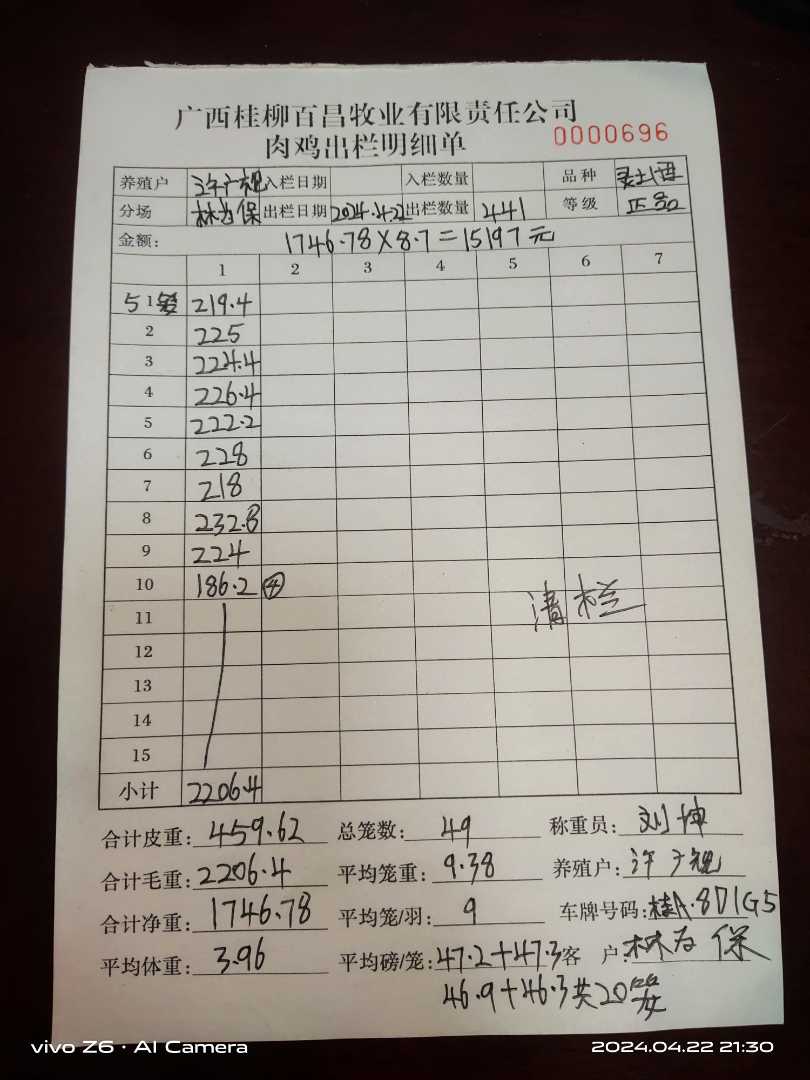 广西桂柳百昌牧业有限责任公司
肉鸡出栏明细单 0000696
养殖户 许广规 入栏日期 入栏数量 品种
分场 林为保 出栏日期 2024.4.22 出栏数量 441 等级 正品
金额： 1746.78×8.7=15197元
1 2 3 4 5 6 7
5 1 219.4
2 225
3 224.4
4 226.4
5 222.2
6 228
7 218
8 232.8
9 224
10 186.2 ④
11
12
13
14
15
清栏
小计 2206.4
合计皮重： 459.62 总笼数： 49 称重员： 刘坤
合计毛重： 2206.4 平均笼重： 9.38 养殖户： 许广规
合计净重： 1746.78 平均笼/羽： 9 车牌号码： 桂A·8D1G5
平均体重： 3.96 平均磅/笼： 47.2+47.3 客户： 林为保
46.9+46.3共20
vivo Z6·AI Camera 2024.04.22 21:30